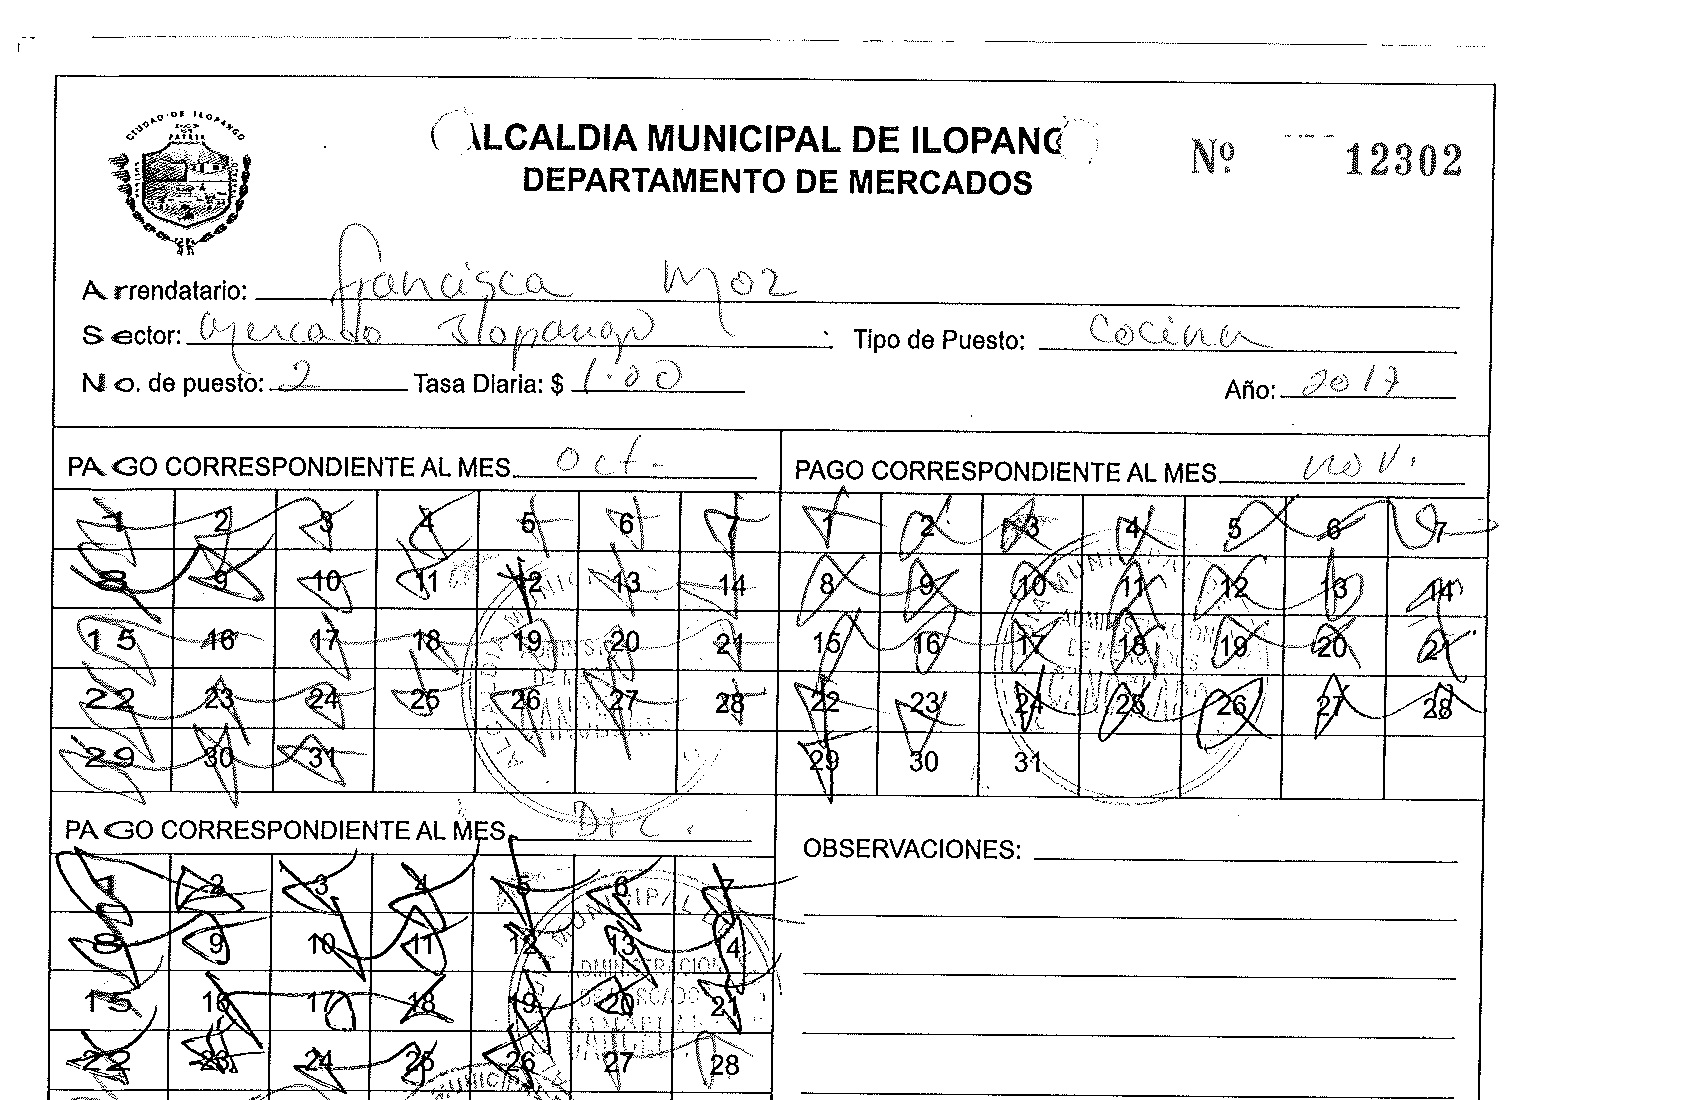 CIUDAD DE ILOPANGO
ALCALDIA MUNICIPAL DE ILOPANGO
DEPARTAMENTO DE MERCADOS
Nº 12302
Arrendatario: Francisca Moz
Sector: Mercado Ilopango Tipo de Puesto: Cocina
No. de puesto: 2 Tasa Diaria: $ 1.00 Año: 2017
PAGO CORRESPONDIENTE AL MES Oct. PAGO CORRESPONDIENTE AL MES Nov.
1 2 3 4 5 6 7 1 2 3 4 5 6 7
8 9 10 11 12 13 14 8 9 10 11 12 13 14
15 16 17 18 19 20 21 15 16 17 18 19 20 21
22 23 24 25 26 27 28 22 23 24 25 26 27 28
29 30 31 29 30 31
PAGO CORRESPONDIENTE AL MES Dic.
OBSERVACIONES:
1 2 3 4 5 6 7
8 9 10 11 12 13 14
15 16 17 18 19 20 21
22 23 24 25 26 27 28